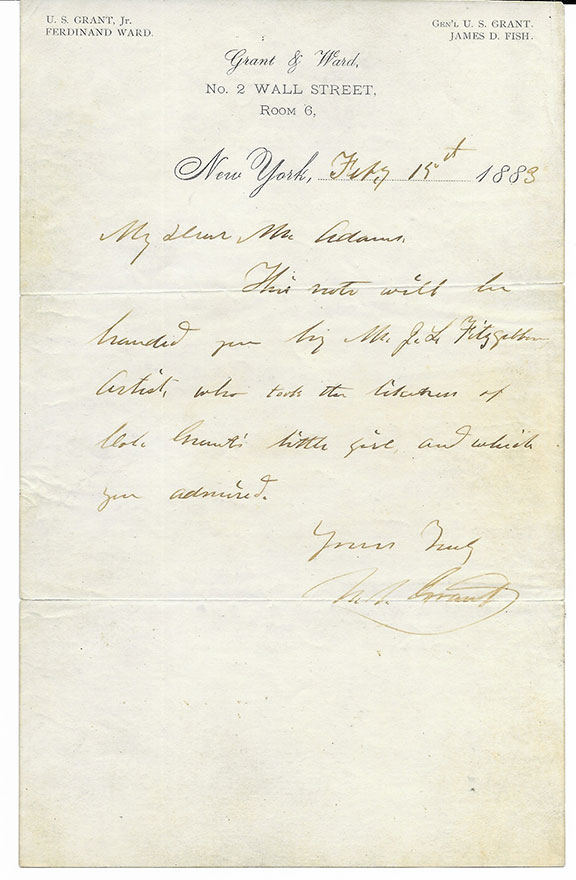 U. S. GRANT, Jr.
FERDINAND WARD.
GEN'L U. S. GRANT.
JAMES D. FISH.
Grant & Ward,
No. 2 WALL STREET,
ROOM 6,
New York, Feby 15th 1883
My Dear Mr. Adams.
This note will be
handed you by Mr. J. L. Fitzgibbon
Artist, who took the likeness of
Col. Grant's little girl, and which
you admired.
Yours Truly
U. S. Grant